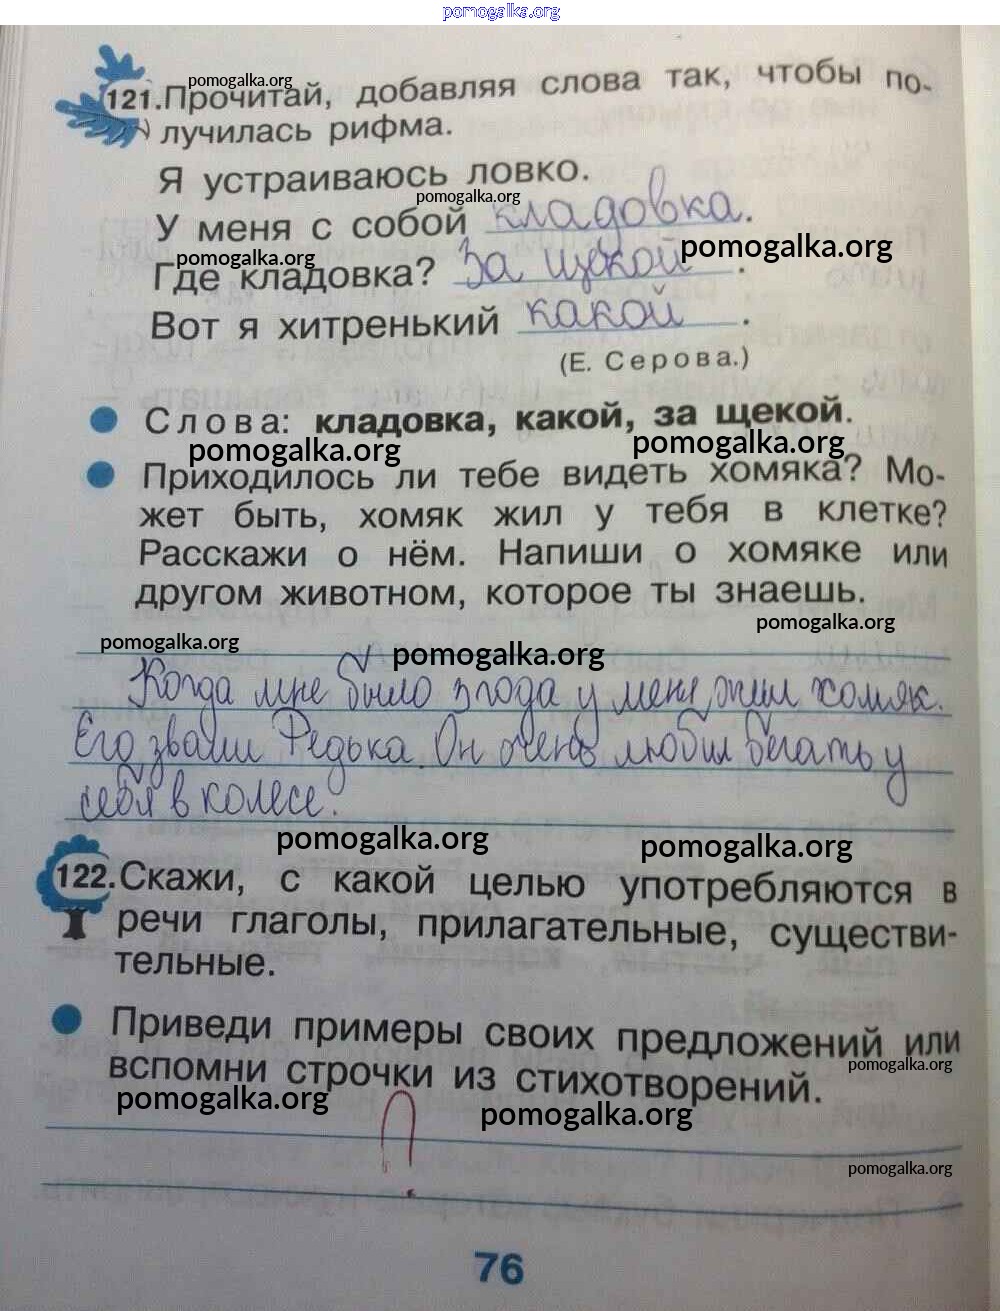 pomogalka.org
pomogalka.org
121. Прочитай, добавляя слова так, чтобы по-
лучилась рифма.
Я устраиваюсь ловко.
pomogalka.org
У меня с собой кладовка.
pomogalka.org
pomogalka.org
Где кладовка? За щекой.
Вот я хитренький какой.
(Е. Серова.)
Слова: кладовка, какой, за щекой.
pomogalka.org
pomogalka.org
Приходилось ли тебе видеть хомяка? Мо-
жет быть, хомяк жил у тебя в клетке?
Расскажи о нём. Напиши о хомяке или
другом животном, которое ты знаешь.
pomogalka.org
pomogalka.org
pomogalka.org
Когда мне было 3 года у меня жил хомяк.
Его звали Редька. Он очень любил бегать у
себя в колесе.
pomogalka.org
pomogalka.org
122. Скажи, с какой целью употребляются в
речи глаголы, прилагательные, существи-
тельные.
Приведи примеры своих предложений или
вспомни строчки из стихотворений.
pomogalka.org
pomogalka.org
pomogalka.org
?
pomogalka.org
76